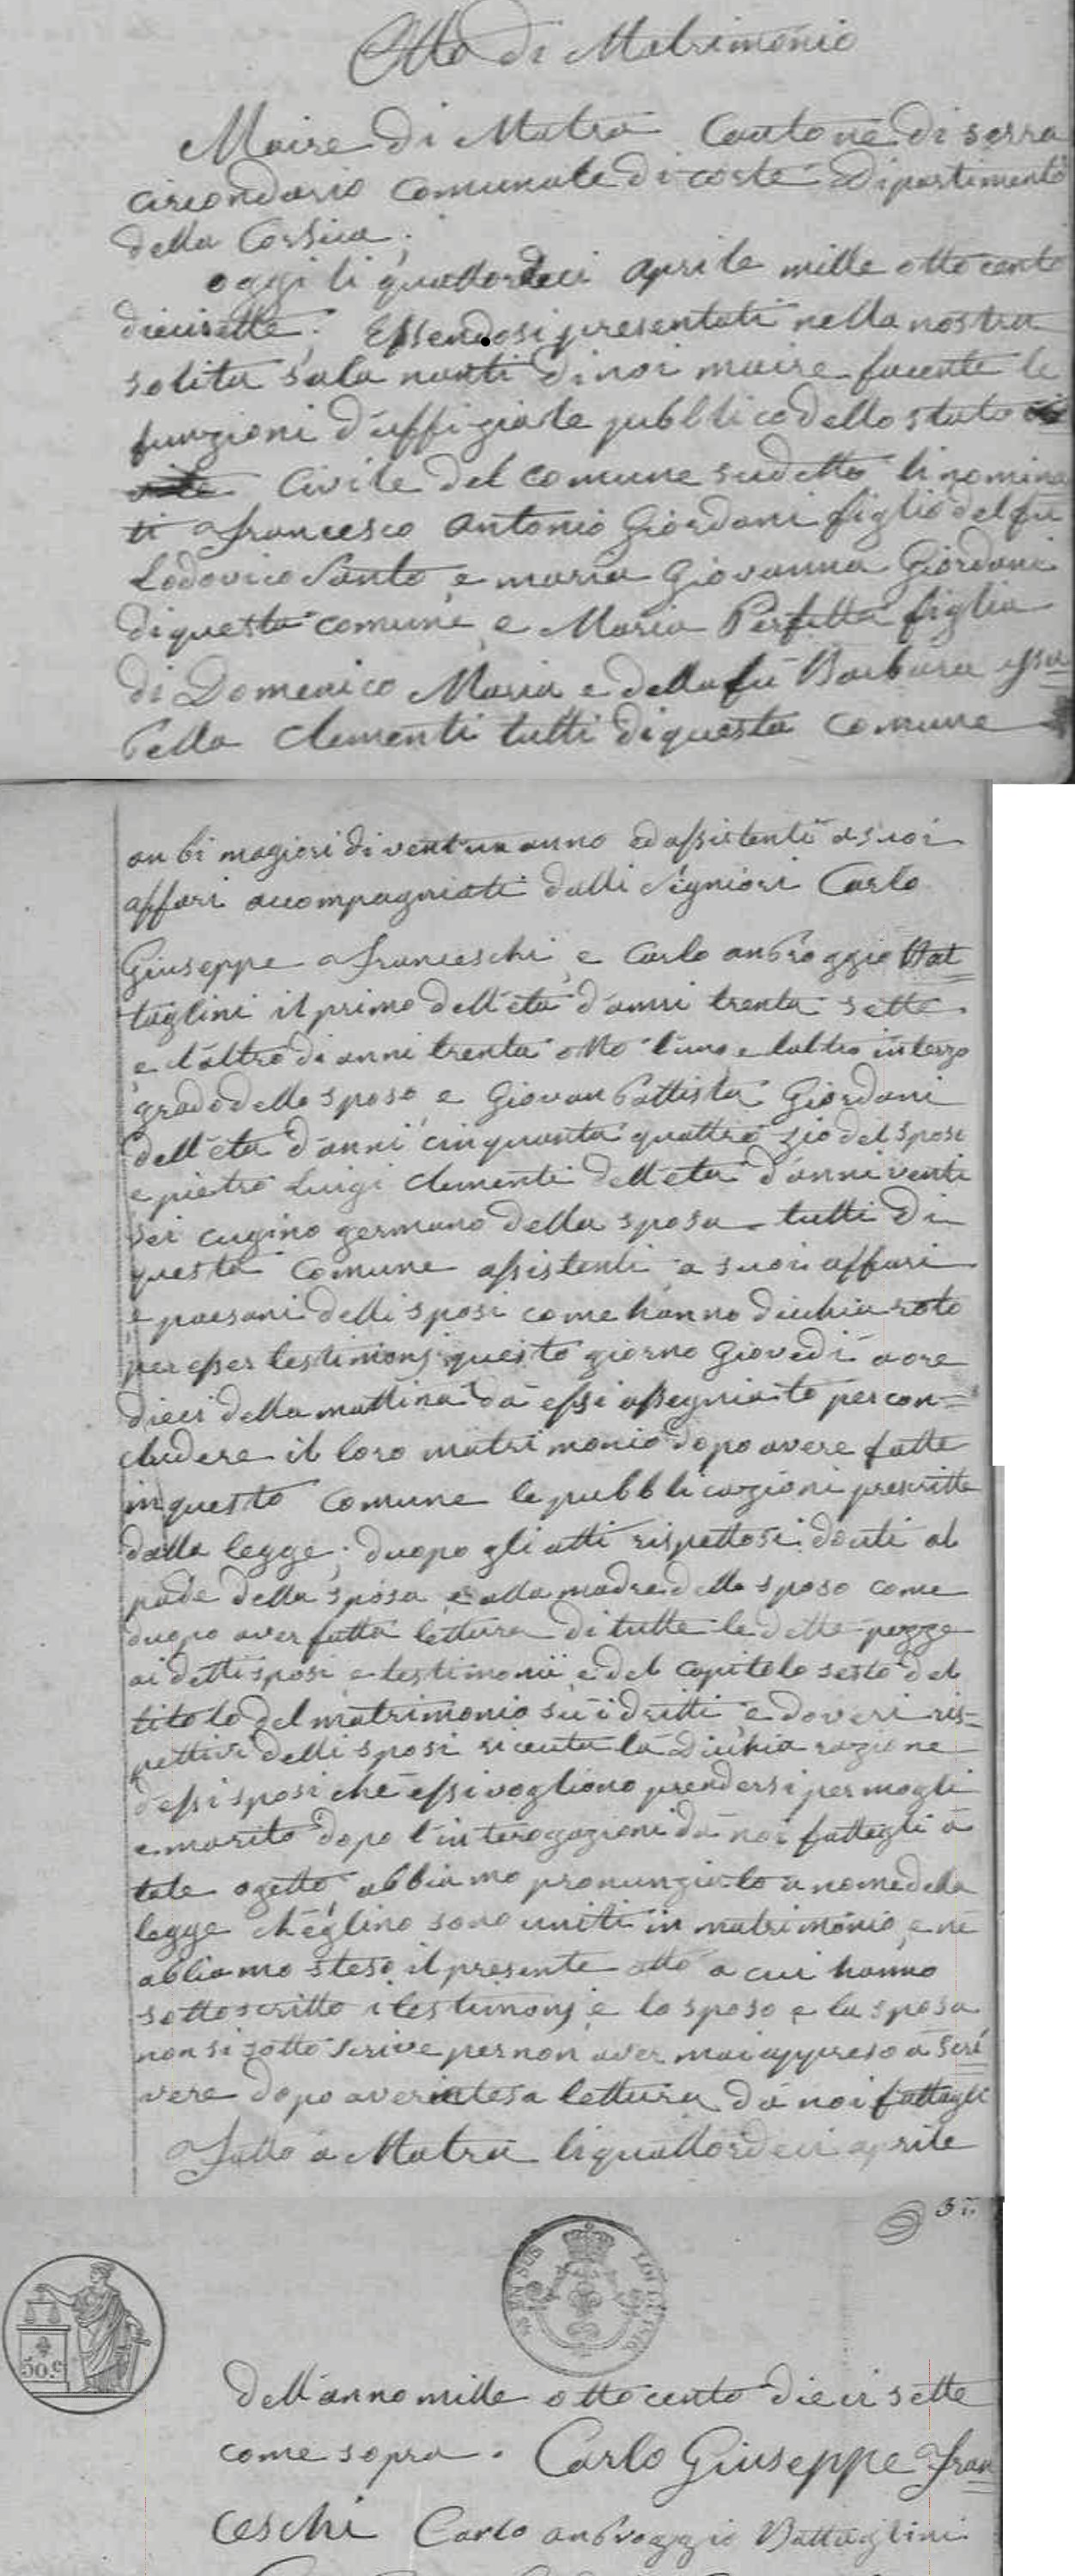 Atto di Matrimonio
Maire di Matra Cantone di serra
circondario comunale di corte Dipartimento
della Corsica;
oggi li quattordeci aprile mille otto cento
diecisette; Essendosi presentati nella nostra
solita sala nanti di noi maire facente le
funzioni d'uffiziale pubblico dello stato
civile del comune sudetto li nomina
ti Francesco Antonio Giordani figlio del fu
Lodovico Santo e maria Giovanna Giordani
di questa comune e Maria Perfetta figlia
di Domenico Maria e della fu Barbara Isa=
bella Clementi tutti di questa comune
anbi magiori di vent'un anno ed assistenti a suoi
affari accompagniati dalli Signiori Carlo
Giuseppe Franceschi, e Carlo anbroggio Bat=
taglini il primo dell'età d'anni trenta sette
e l'altro di anni trenta otto l'uno e laltro in terzo
grado dello sposo e Giovan Battista Giordani
dell'età d'anni cinquanta quattro zio del sposo
e pietro Luigi Clementi dell'età d'anni venti
sei cugino germano della sposa tutti di
questa comune assistenti a suoi affari
e paesani delli sposi come hanno dichiaroto
per esser testimonj questo giorno Giovedì a ore
dieci della mattina da essi assegniato per con=
cludere il loro matrimonio dopo avere fatte
in questo comune le pubblicazioni prescritte
dalla legge; duopo gli atti rispettosi douti al
pade della sposa, e alla madre dello sposo come
duopo aver fatta lettura di tutte le dette pezze
ai detti sposi e testimonii e del capitolo sesto del
titolo del matrimonio su i dritti e doveri ris=
pettivi delli sposi ricevuta la Dichiarazione
d'essi sposi che essi vogliono prendersi per mogli
e marito dopo l'interogazioni da noi fattegli a
tale ogetto abbiamo pronunziato a nome della
legge ch'eglino sono uniti in matrimonio, e ne
abbiamo steso il presente atto a cui hanno
sottoscritto i testimonj e lo sposo e la sposa
non si sotto scrive per non aver mai appreso a scri
vere dopo aver intesa lettura da noi fattagli
Fatto a Matra li quattordeci aprile
50.c
dell'anno mille otto cento dieci sette
come sopra. Carlo Giuseppe Fran
ceschi Carlo anbroggio Battaglini